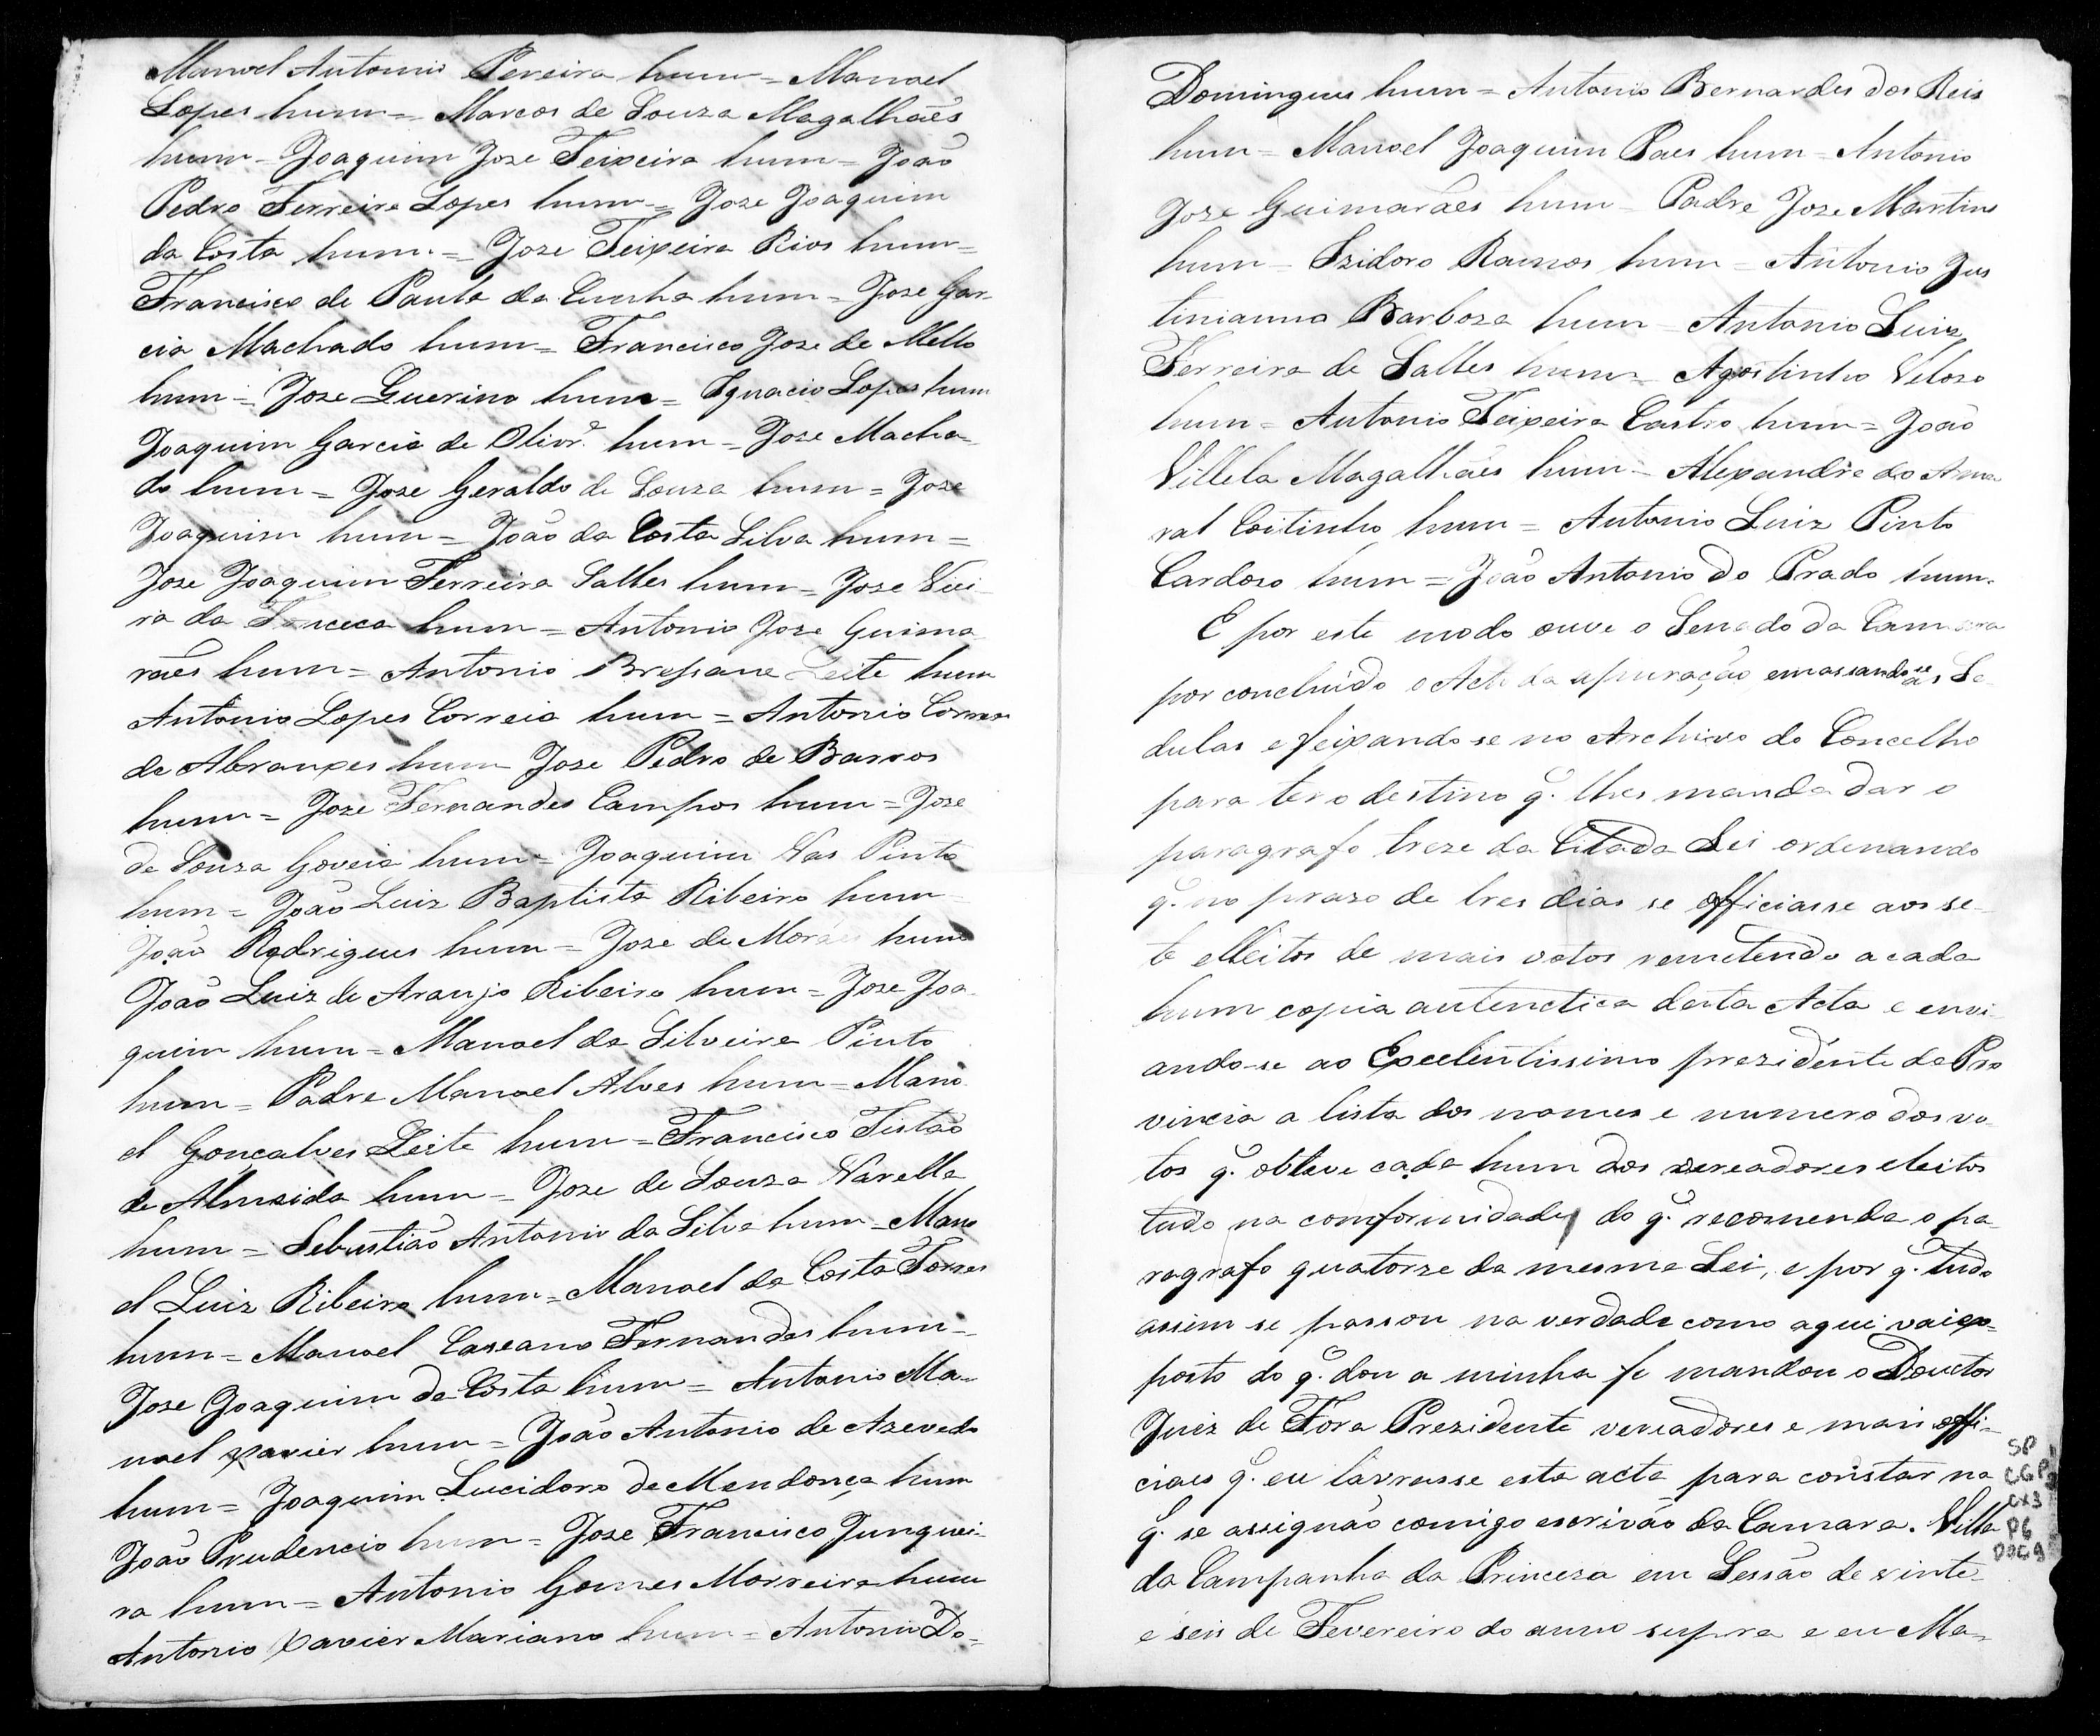 Manoel Antonio Pereira hum = Manoel
Lopes hum = Marcos de Souza Magalhaẽs
hum = Joaquim Joze Teixeira hum = João
Pedro Ferreira Lopes hum = Joze Joaquim
da Costa hum = Joze Teixeira Rios hum =
Francisco de Paula da Cunha hum = Joze Gar-
cia Machado hum = Francisco Joze de Mello
hum = Joze Guerino hum = Ignacio Lopes hum
Joaquim Garcia de Olivrᵃ hum = Joze Macha-
do hum = Joze Geraldo de Souza hum = Joze
Joaquim hum = João da Costa Silva hum =
Joze Joaquim Ferreira Salles hum = Joze Viei-
ra da Fonceca hum = Antonio Joze Guima
rães hum = Antonio Bressane Leite hum
Antonio Lopes Correia hum = Antonio Correa
de Abranxes hum Joze Pedro de Barros
hum = Joze Fernandes Campos hum = Joze
de Souza Goveia hum = Joaquim Vas Pinto
hum = João Luiz Baptista Ribeiro hum
João Rodrigues hum = Joze de Moraes hum
João Luiz de Araujo Ribeiro hum = Joze Joa-
quim hum = Manoel da Silveira Pinto
hum = Padre Manoel Alves hum = Mano
el Gonçalves Leite hum = Francisco Tistão
de Almeida hum = Joze de Souza Varella
hum = Sebastião Antonio da Silva hum = Mano
el Luiz Ribeiro hum = Manoel da Costa Torres
hum = Manoel Caseano Fernandes hum =
Joze Joaquim da Costa hum = Antonio Ma-
noel Xavier hum = João Antonio de Azevedo
hum = Joaquim Lucidoro de Mendonça hum
João Prudencio hum = Joze Francisco Junquei-
ra hum = Antonio Gomes Morreira hum
Antonio Xavier Mariano hum = Antonio Do-
Domingues hum = Antonio Bernardes dos Reis
hum = Manoel Joaquim Paes hum = Antonio
Joze Guimarães hum = Padre Joze Martins
hum = Izidoro Ramos hum = Antonio Jus
tinianno Barboza hum = Antonio Luiz
Ferreira de Salles hum = Agostinho Velozo
hum = Antonio Teixeira Castro hum = João
Villela Magalhães hum = Alexandre do Ama
ral Coitinho hum = Antonio Luiz Pinto
Cardoso hum = João Antonio do Prado hum.
E por este modo ouve o Senado da Camara
por concluido o Acto da apuração emassandose as Se
dulas e feixando-se no Archivo do Concelho
para ter o destino q̃. lhes manda dar o
paragrafo treze da Citada Lei ordenando
q̃. no prazo de tres dias se officiasse aos se-
te elleitos de mais votos remetendo a cada
hum copia autenctica desta Acta e envi-
ando-se ao Excelentissimo prezidente da Pro
vincia a lista dos nomes e numero dos vo-
tos q̃. obteve cada hum dos vereadores eleitos
tudo na comformidade do q̃. recomenda o pa-
ragrafo quatorze da mesma Lei, e por q̃. tudo
assim se passou na verdade como aqui vai ex-
posto do q̃. dou a minha fe mandou o Douctor
Juiz de Fora Prezidente vereadores e mais offi-
ciaes q̃. eu lavrasse esta acta para constar na
q̃. se assignão comigo escrivão da Camara. Villa
da Campanha da Princeza em Sessão de vinte
e seis de Fevereiro do anno supra e eu Ma-
SP
CGP
CX3
P6
DOC9